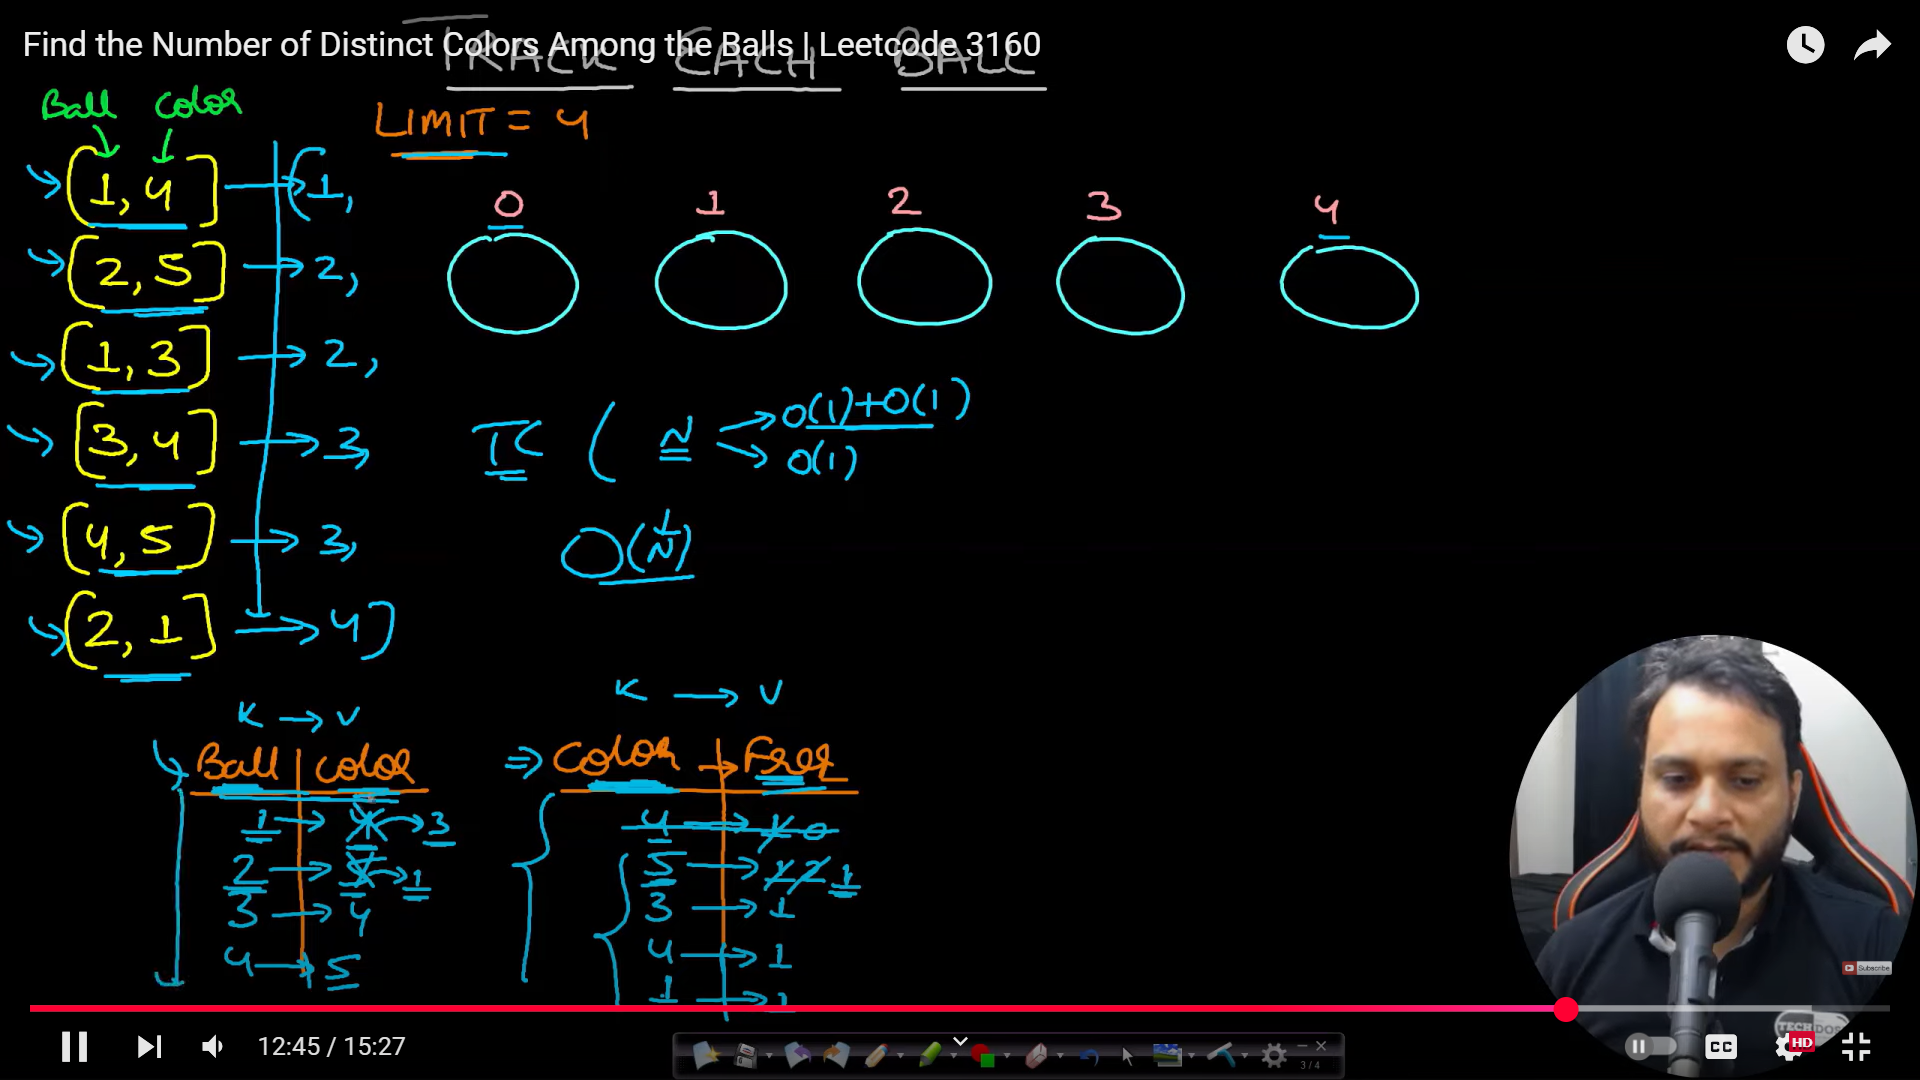 Find the Number of Distinct Colors Among the Balls | Leetcode 3160
TRACK EACH BALL
Ball Color
LIMIT = 4
[1, 4] → [1,
[2, 5] → 2,
[1, 3] → 2,
[3, 4] → 3,
[4, 5] → 3,
[2, 1] → 4]
0 1 2 3 4
TC ( N → O(1)+O(1)
→ O(1)
O(N)
K → V
Ball | Color
1 → 4 → 3
2 → 5 → 1
3 → 4
4 → 5
K → V
⇒ Color → Freq
4 → 1 0
5 → 1 2 1
3 → 1
4 → 1
1 → 1
Subscribe
TECH DOSE
12:45 / 15:27
3 / 4
CC
HD